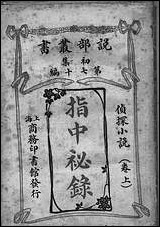 說部叢書
初集
第七十編
偵探小說 (卷上)
指中祕錄
上海商務印書館發行